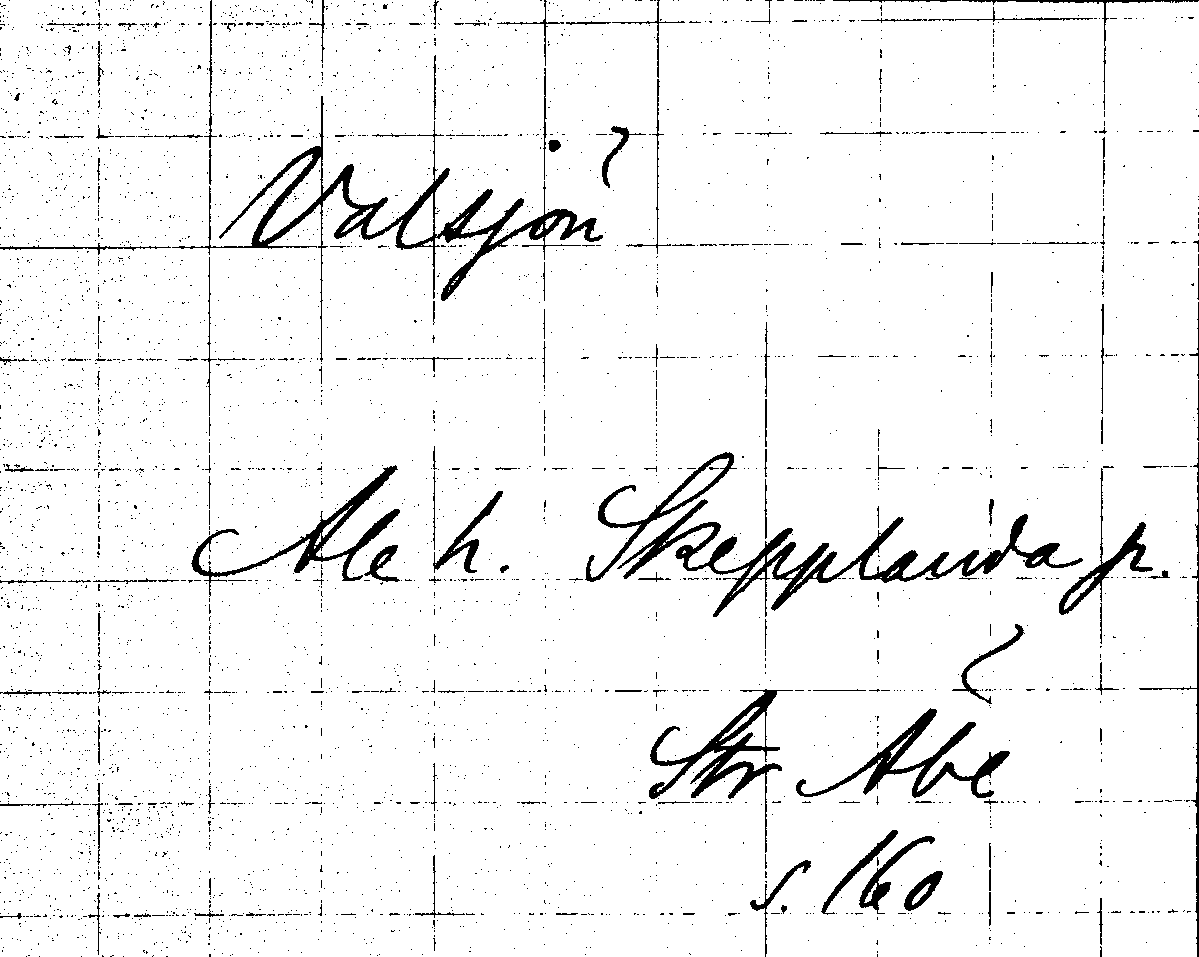 Valsjön
Ale h. Skepplanda p.
Str Abc
s. 160